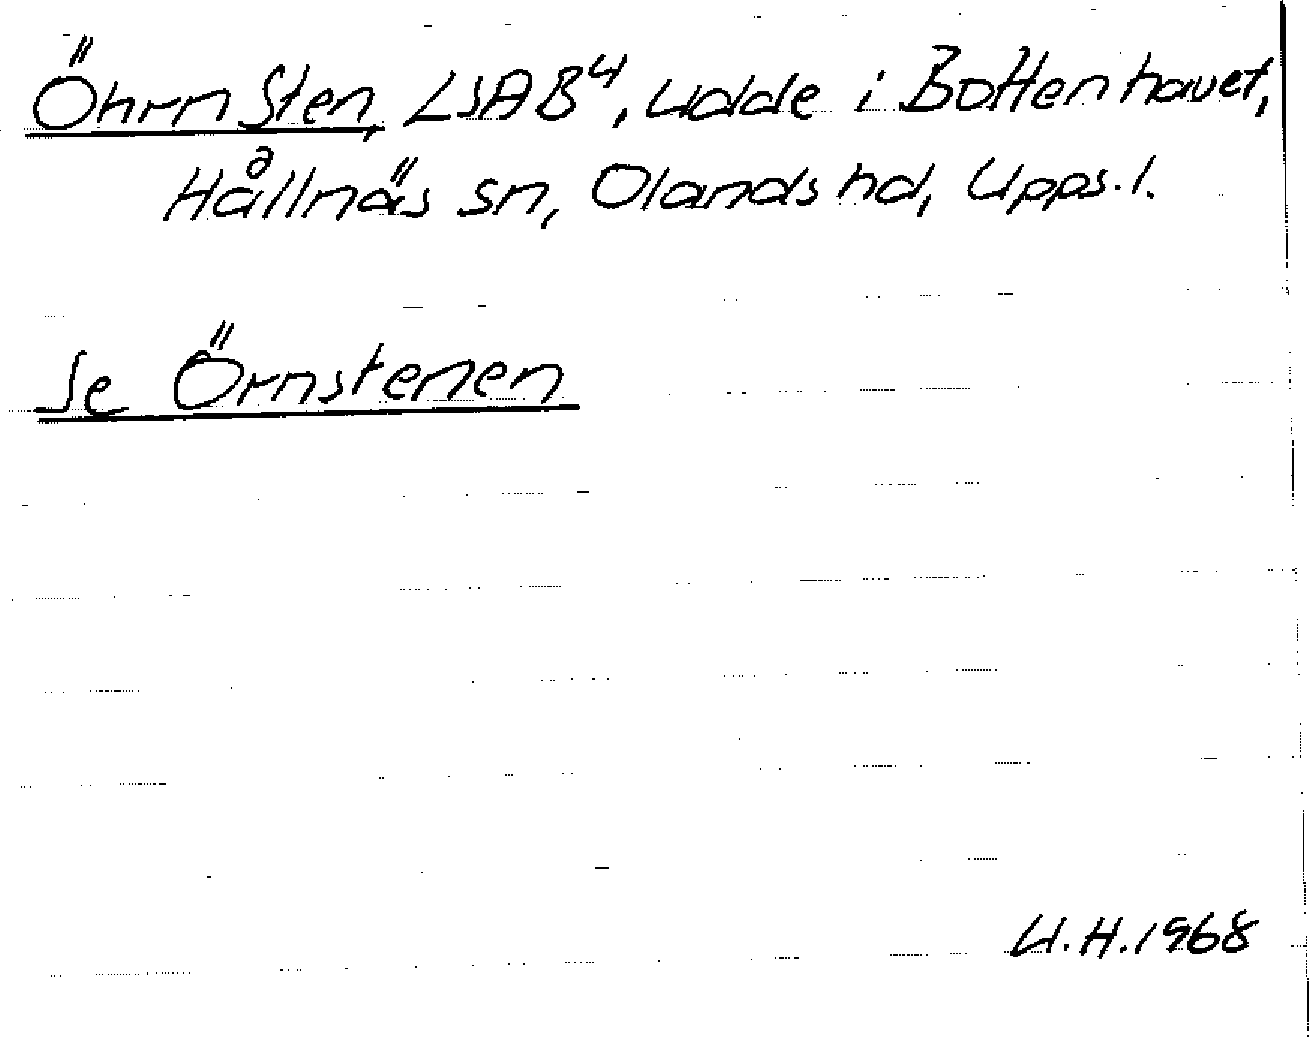 Öhrn Sten, LSA B4, udde i Bottenhavet,
Hållnäs sn, Olands hd, Upps. l.
Se Örnstenen
U.H. 1968